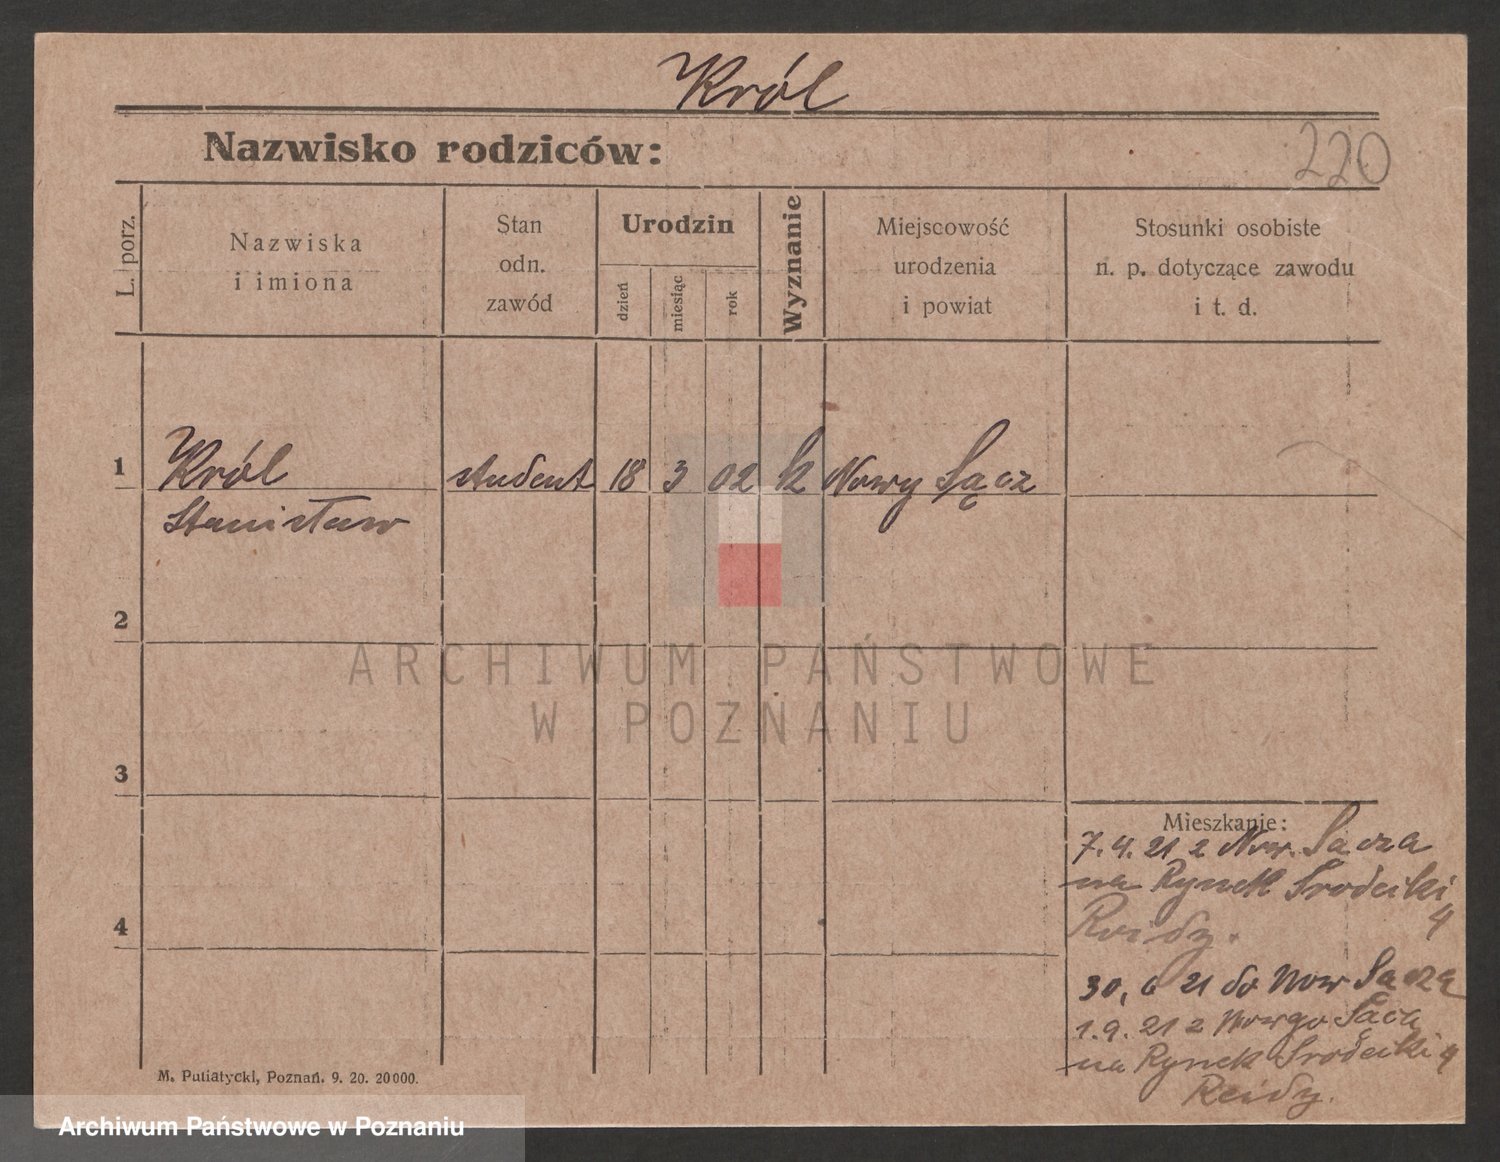 Król
Nazwisko rodziców:
220
L. porz.
Nazwiska
i imiona
Stan
odn.
zawód
Urodzin
dzień
miesiąc
rok
Wyznanie
Miejscowość
urodzenia
i powiat
Stosunki osobiste
n. p. dotyczące zawodu
i t. d.
1 Król student 18 3 02 k Nowy Sącz
Stanisław
2
3
4
ARCHIWUM PAŃSTWOWE
W POZNANIU
Mieszkanie:
7. 4. 21 z Now. Sącza
na Rynek Środecki
4
30, 6 21 do Now Sącza
1. 9. 21 z Nowgo Sącz
na Rynek Środecki 4
M. Putiatycki, Poznań. 9. 20. 20000.
Archiwum Państwowe w Poznaniu